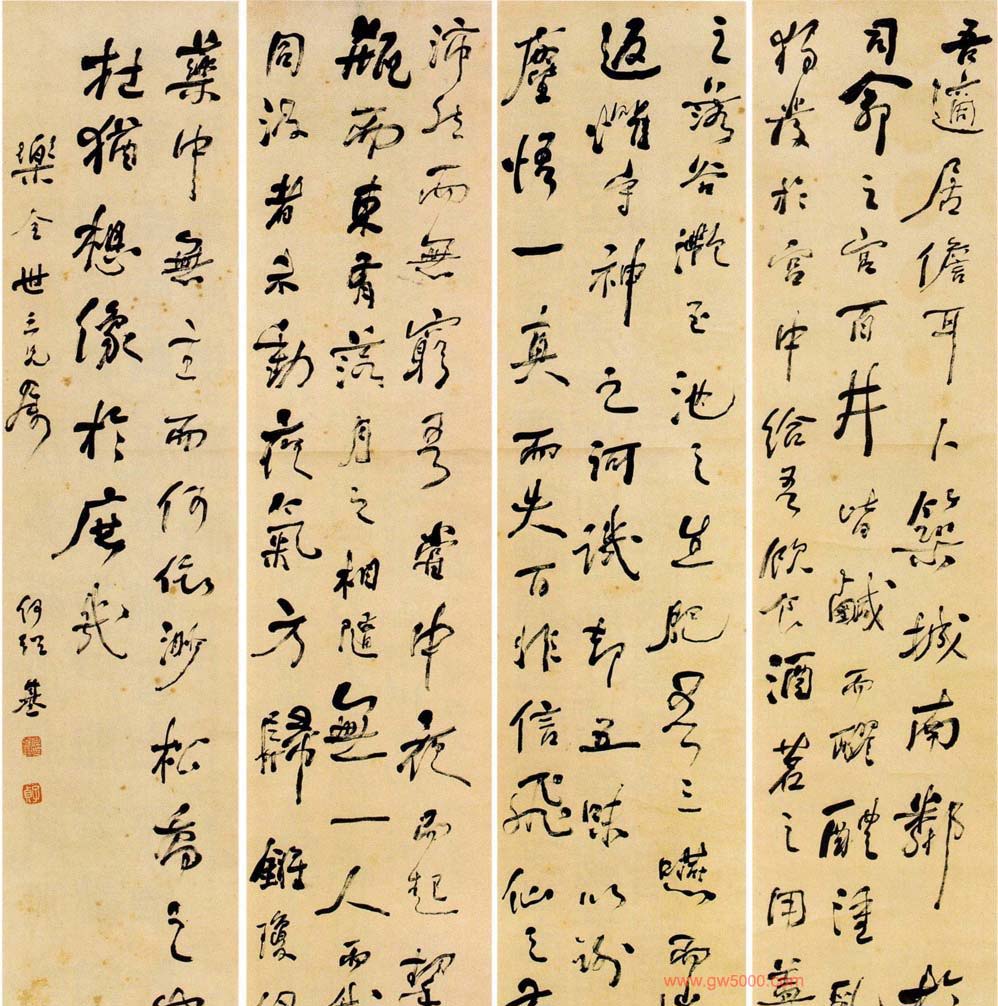 吾適居儋耳卜築城南鄰於
司命之宮百井皆鹹而醪醴湩乳
獨發於宮中給吾飲食酒茗之用蓋
之落谷灩玉池之生肥吾三嚥而遄
返懼守神之訶譏却五味以謝
塵悟一真而失百非信飛仙之有
沛然而無窮吾嘗中夜而起挈
瓶而東有落月之相隨無一人而我
同汲者未動夜氣方歸鏘瓊佩
藥中無主而何依渺松喬之安
在猶想像於庶幾
樂全世三兄屬 何紹基
www.gw5000.com